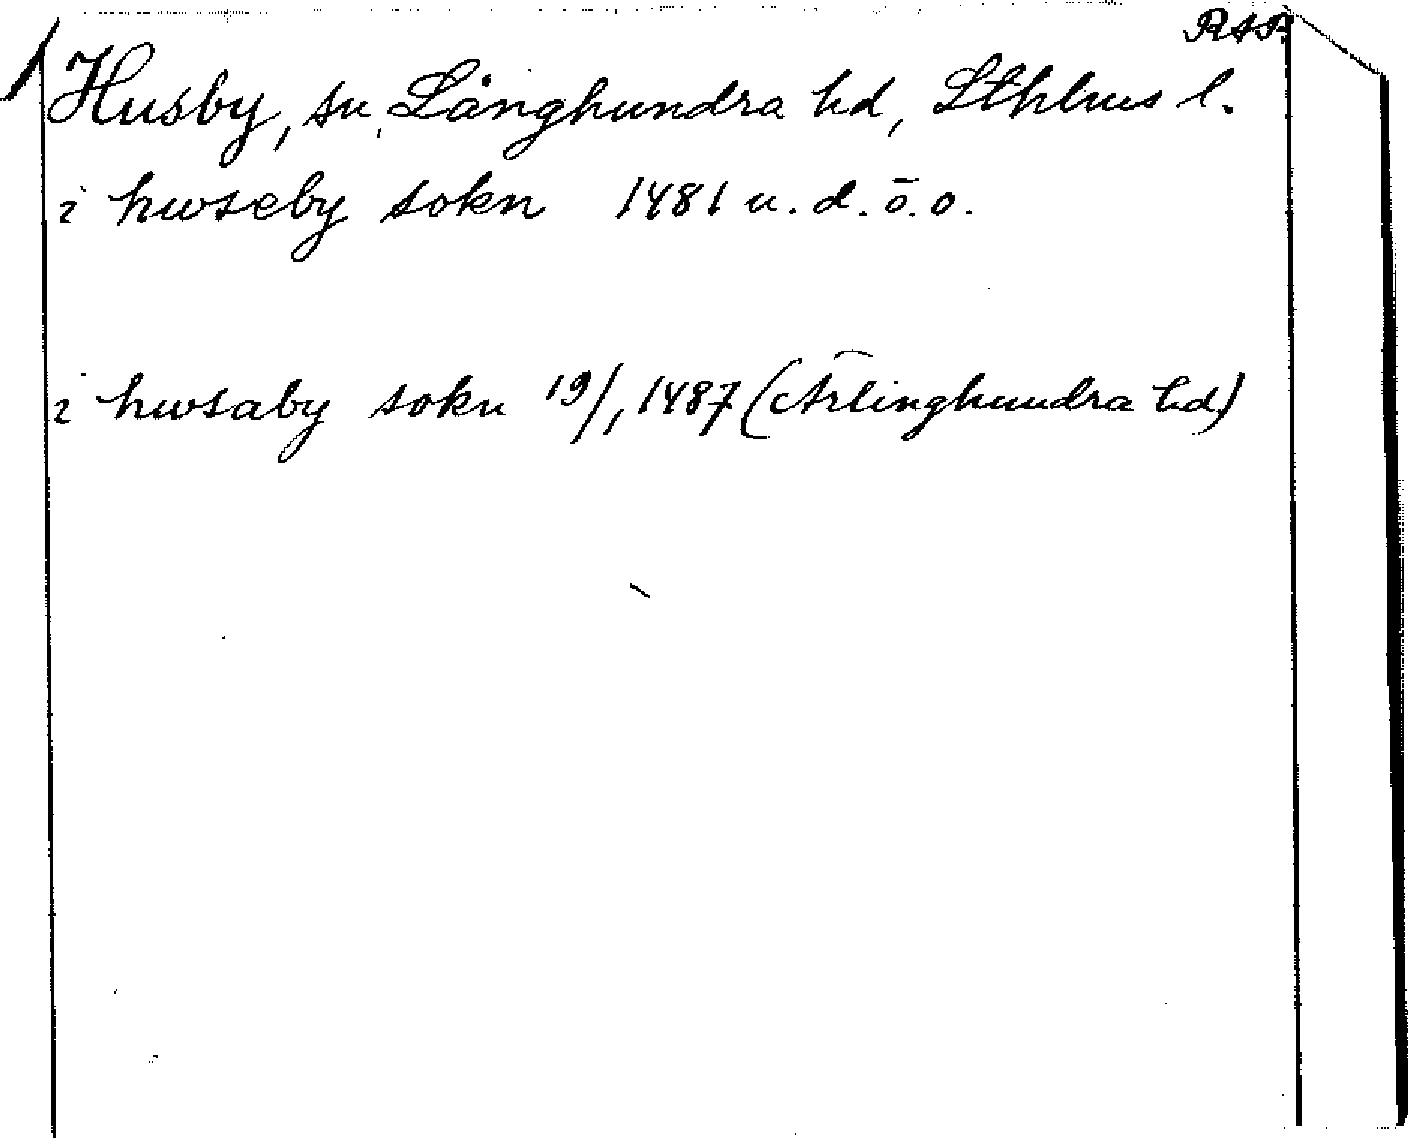 RAP.
Husby, sn, Långhundra hd, Sthlms l.
i hwseby sokn 1481 u. d. ō. o.
i hwsaby sokn 19/1 1487 (Ärlinghundra hd)